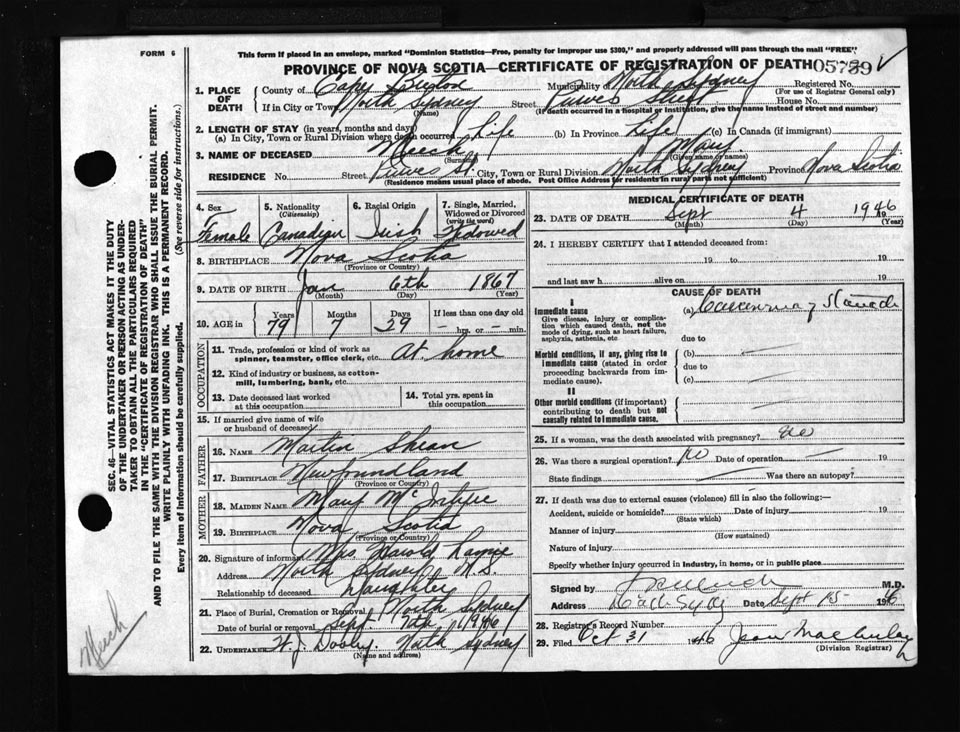 FORM 6
This form if placed in an envelope, marked "Dominion Statistics—Free, penalty for improper use $300," and properly addressed will pass through the mail "FREE"
PROVINCE OF NOVA SCOTIA—CERTIFICATE OF REGISTRATION OF DEATH 05739
1. PLACE OF DEATH
County of Cape Breton Municipality North Sydney Registered No.
(For use of Registrar General only)
If in City or Town North Sydney Street House No.
(Name) (If death occurred in a hospital or institution, give the name instead of street and number)
2. LENGTH OF STAY (in years, months and days)
(a) In City, Town or Rural Division where death occurred Life (b) In Province Life (c) In Canada (if immigrant)
3. NAME OF DECEASED Meech Mary
(Surname) (Given name or names)
RESIDENCE No. Street St. City, Town or Rural Division North Sydney Province Nova Scotia
(Residence means usual place of abode. Post Office Address for residents in rural parts not sufficient)
4. Sex Female
5. Nationality (Citizenship) Canadian
6. Racial Origin Irish
7. Single, Married, Widowed or Divorced (write the word) Widowed
8. BIRTHPLACE Nova Scotia
(Province or Country)
9. DATE OF BIRTH Jan 6th 1867
(Month) (Day) (Year)
10. AGE in Years 79 Months 7 Days 29 If less than one day old
hrs. or min.
OCCUPATION
11. Trade, profession or kind of work as spinner, teamster, office clerk, etc. At home
12. Kind of industry or business, as cotton-mill, lumbering, bank, etc.
13. Date deceased last worked at this occupation
14. Total yrs. spent in this occupation
15. If married give name of wife or husband of deceased
FATHER
16. NAME Martin Shean
17. BIRTHPLACE Newfoundland
(Province or Country)
MOTHER
18. MAIDEN NAME Mary
19. BIRTHPLACE Nova Scotia
(Province or Country)
20. Signature of informant Mrs. Harold
Address North Sydney N.S.
Relationship to deceased Daughter
21. Place of Burial, Cremation or Removal North Sydney
Date of burial or removal Sept 7th 1946
22. UNDERTAKER North Sydney
(Name and address)
MEDICAL CERTIFICATE OF DEATH
23. DATE OF DEATH Sept 4 1946
(Month) (Day) (Year)
24. I HEREBY CERTIFY that I attended deceased from:
19 to 19
and last saw h alive on 19
CAUSE OF DEATH
I
Immediate cause
Give disease, injury or complication which caused death, not the mode of dying, such as heart failure, asphyxia, asthenia, etc
(a)
due to
Morbid conditions, if any, giving rise to immediate cause (stated in order proceeding backwards from immediate cause).
(b)
due to
(c)
II
Other morbid conditions (if important) contributing to death but not causally related to immediate cause.
25. If a woman, was the death associated with pregnancy? no
26. Was there a surgical operation? no Date of operation 19
State findings Was there an autopsy?
27. If death was due to external causes (violence) fill in also the following:—
Accident, suicide or homicide? Date of injury 19
(State which)
Manner of injury
(How sustained)
Nature of injury
Specify whether injury occurred in industry, in home, or in public place
Signed by M.D.
Address Date Sept
28. Registrar's Record Number
29. Filed Oct 31 1946 Jean
(Division Registrar)
SEC. 46—VITAL STATISTICS ACT MAKES IT THE DUTY OF THE UNDERTAKER OR PERSON ACTING AS UNDERTAKER TO OBTAIN ALL THE PARTICULARS REQUIRED IN THE "CERTIFICATE OF REGISTRATION OF DEATH" AND TO FILE THE SAME WITH THE DIVISION REGISTRAR WHO SHALL ISSUE THE BURIAL PERMIT.
WRITE PLAINLY WITH UNFADING INK. THIS IS A PERMANENT RECORD.
Every item of information should be carefully supplied. (See reverse side for instructions.)